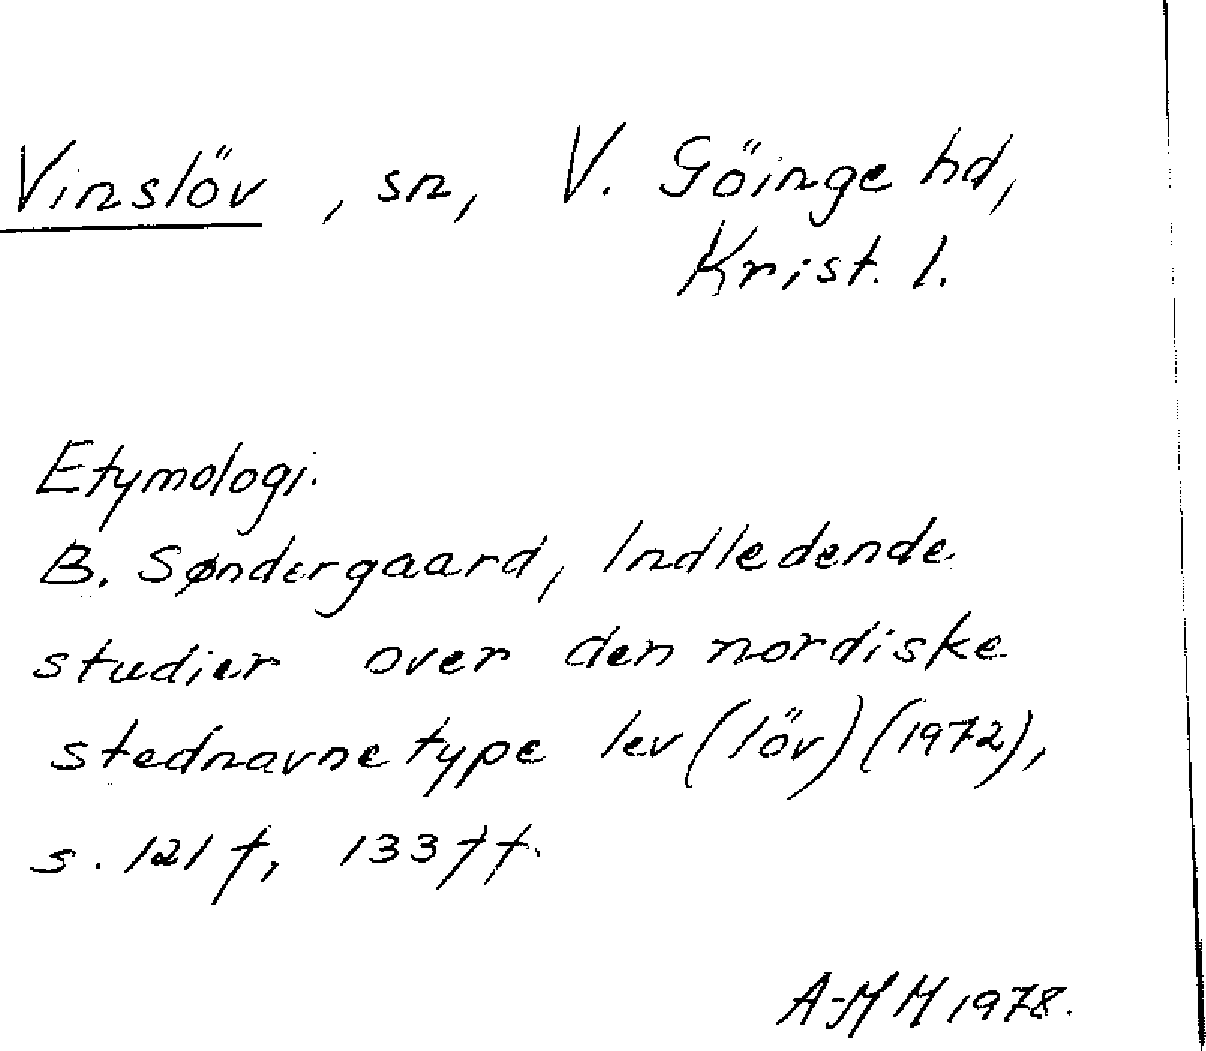 Vinslöv, sn, V. Göinge hd,
Krist. l.
Etymologi.
B. Søndergaard, Indledende
studier over den nordiske
stednavnetype lev (löv) (1972),
s. 121 f, 133 ff.
A-MM 1978.